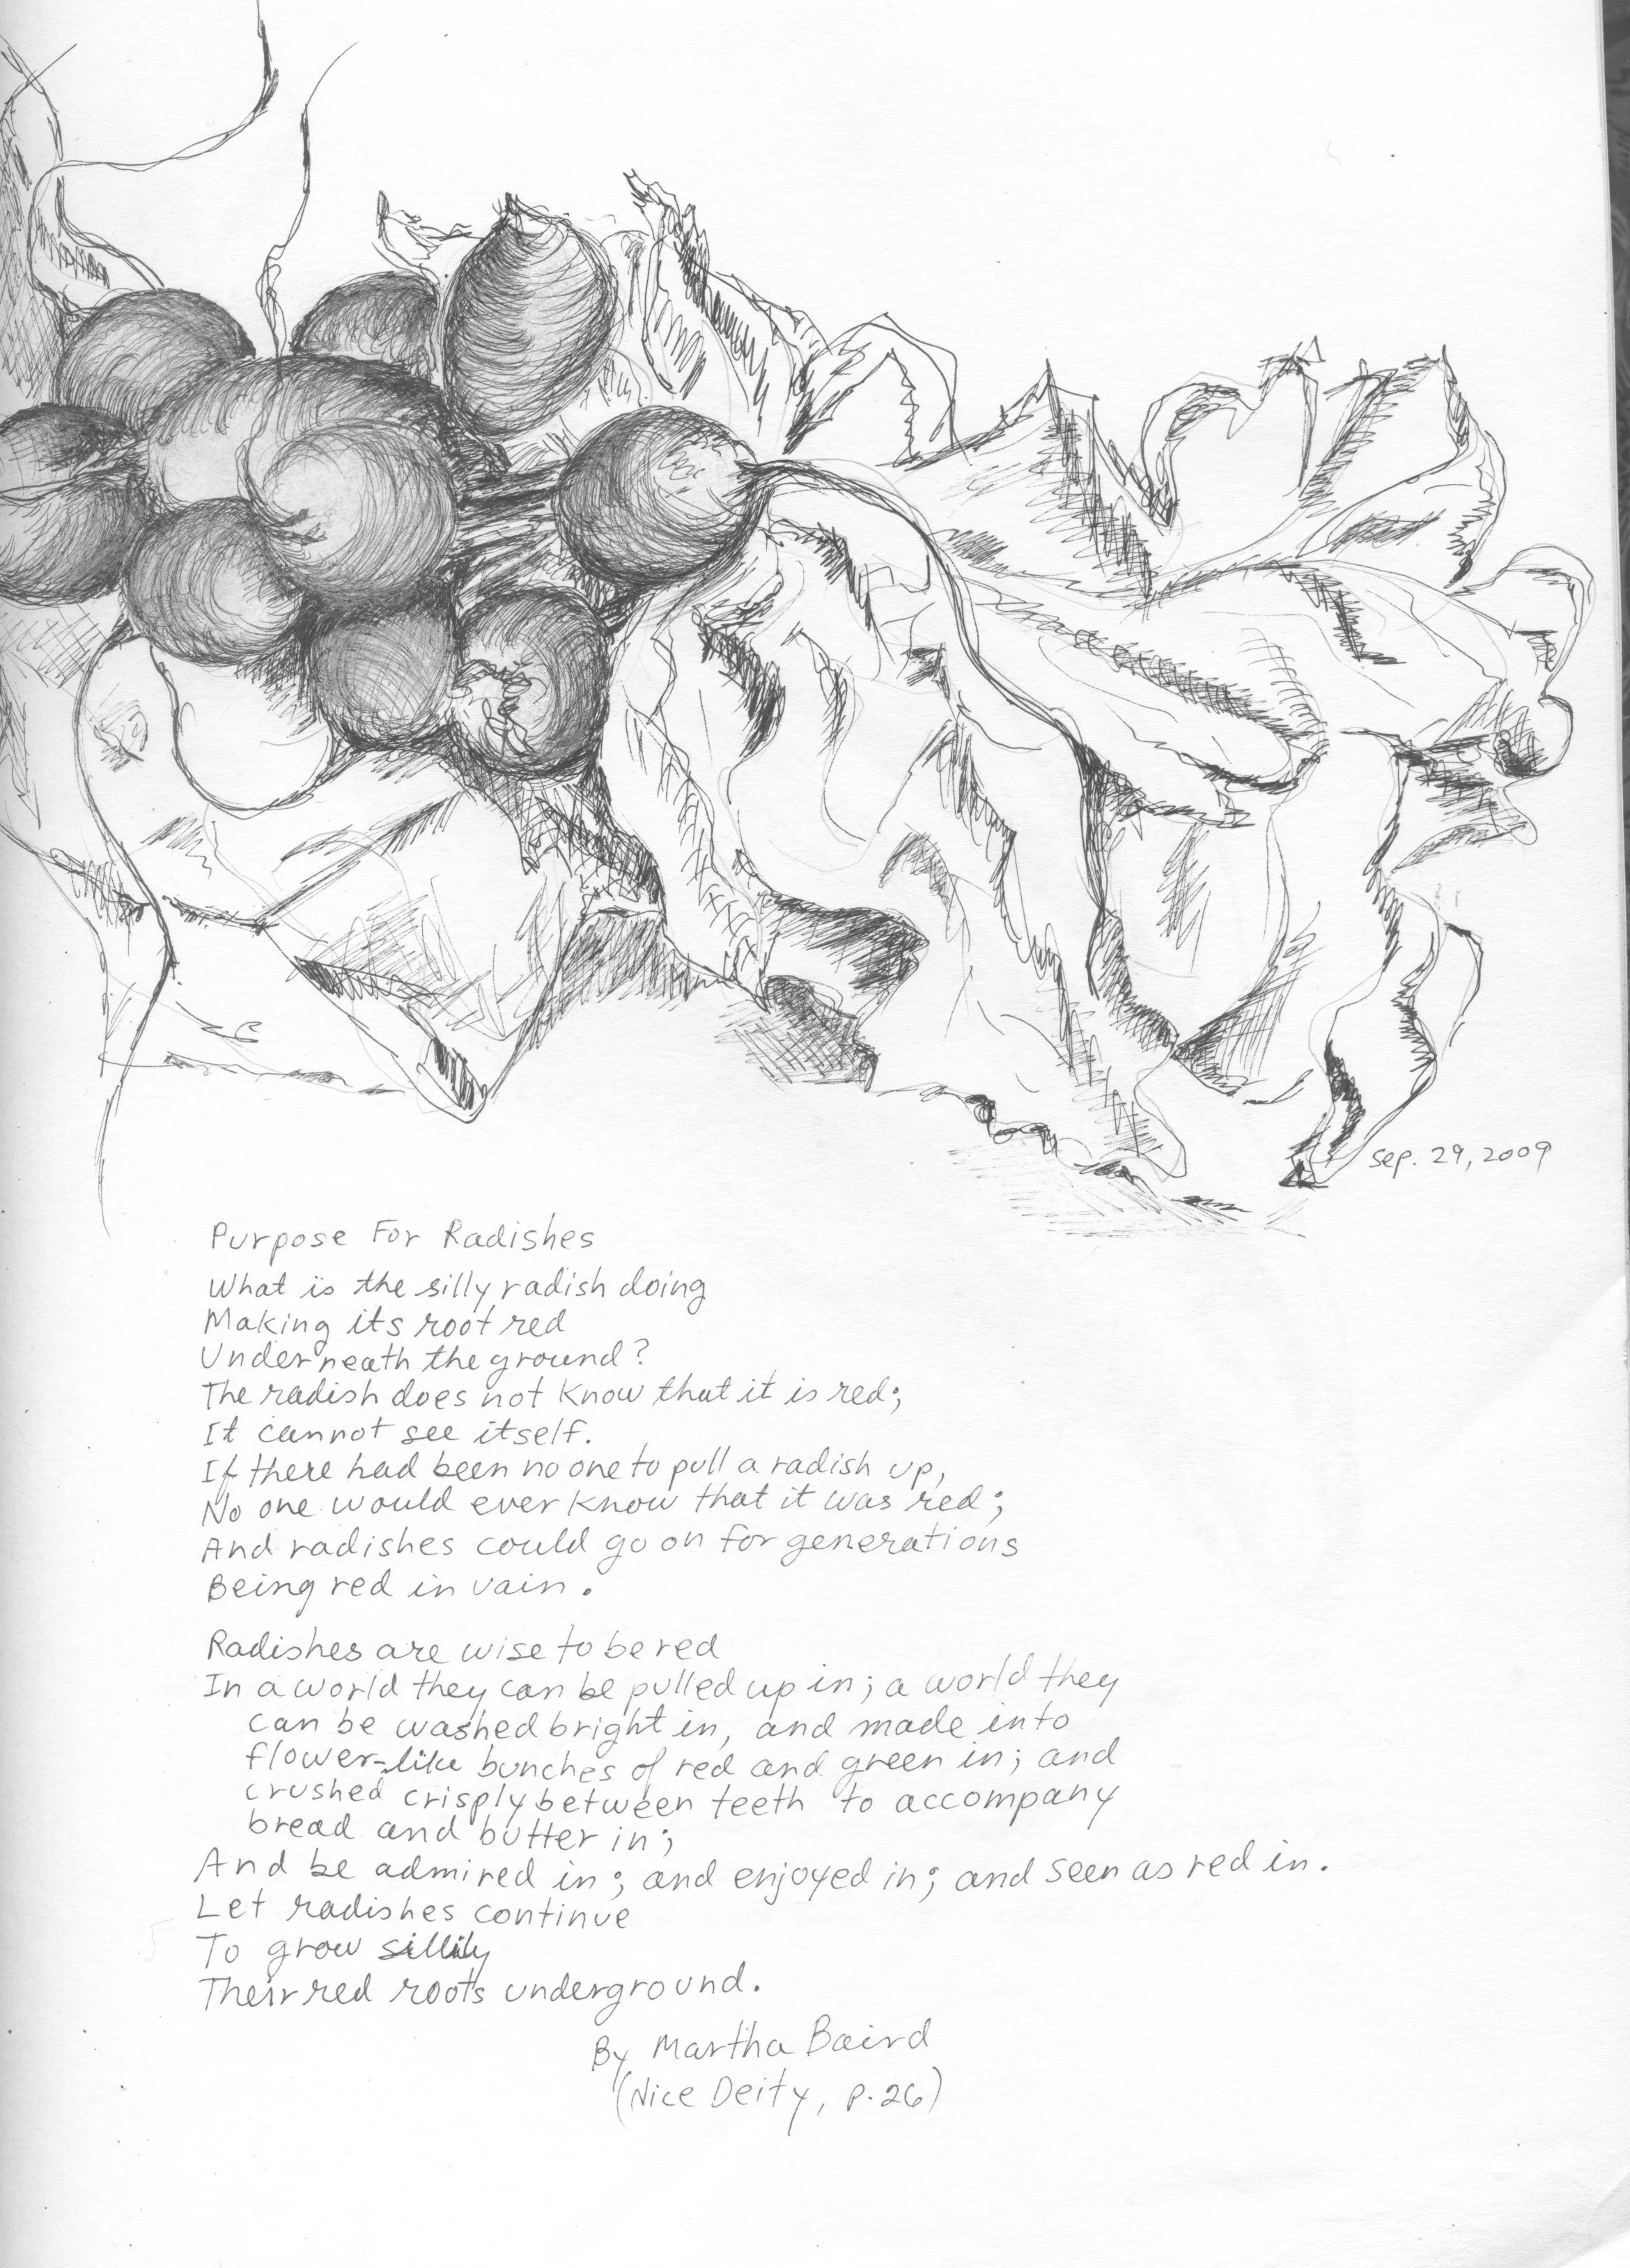 Sep. 29, 2009
Purpose For Radishes
What is the silly radish doing
Making its root red
Underneath the ground?
The radish does not know that it is red;
It cannot see itself.
If there had been no one to pull a radish up,
No one would ever know that it was red;
And radishes could go on for generations
Being red in vain.
Radishes are wise to be red
In a world they can be pulled up in; a world they
can be washed bright in, and made into
flower-like bunches of red and green in; and
crushed crisply between teeth to accompany
bread and butter in;
And be admired in; and enjoyed in; and seen as red in.
Let radishes continue
To grow sillily
Their red roots underground.
By Martha Baird
(Nice Deity, p. 26)